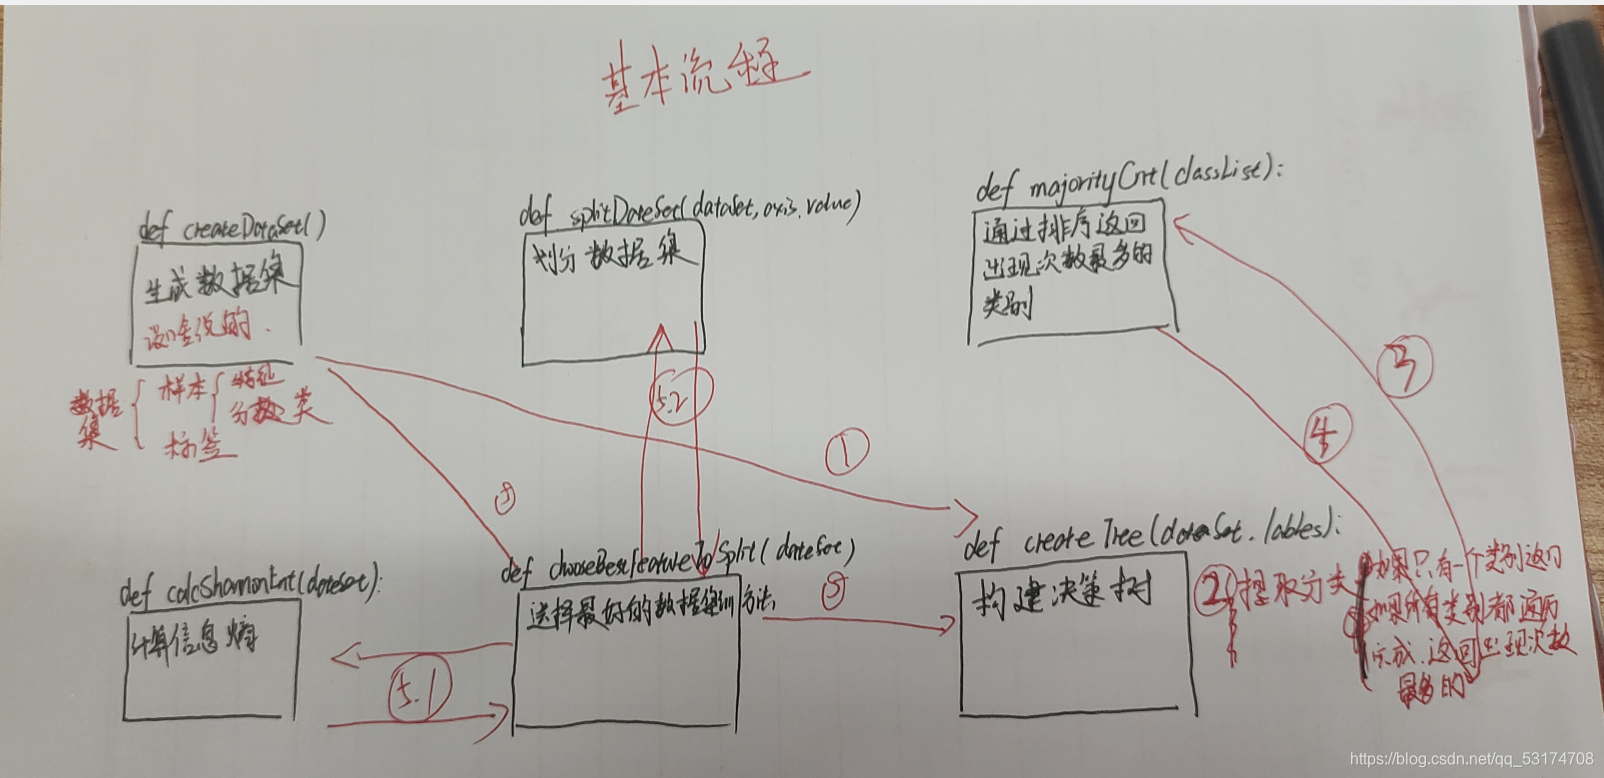 基本流程
def createDataSet()
生成数据集
没啥说的.
数据集
样本
特征
分类
标签
def splitDataSet(dataset,axis,value)
划分数据集
def majorityCnt(classList):
通过排序返回
出现次数最多的
类别
③
④
5.2
①
def calcShannonEnt(dataset):
计算信息熵
5.1
def chooseBestFeatureToSplit(dataSet)
选择最好的数据集划分方法
⑤
def createTree(dataSet,lables):
构建决策树
②
提取分类
如果只有一个类别返回
如果所有类别都遍历
完成,返回出现次数
最多的
https://blog.csdn.net/qq_53174708